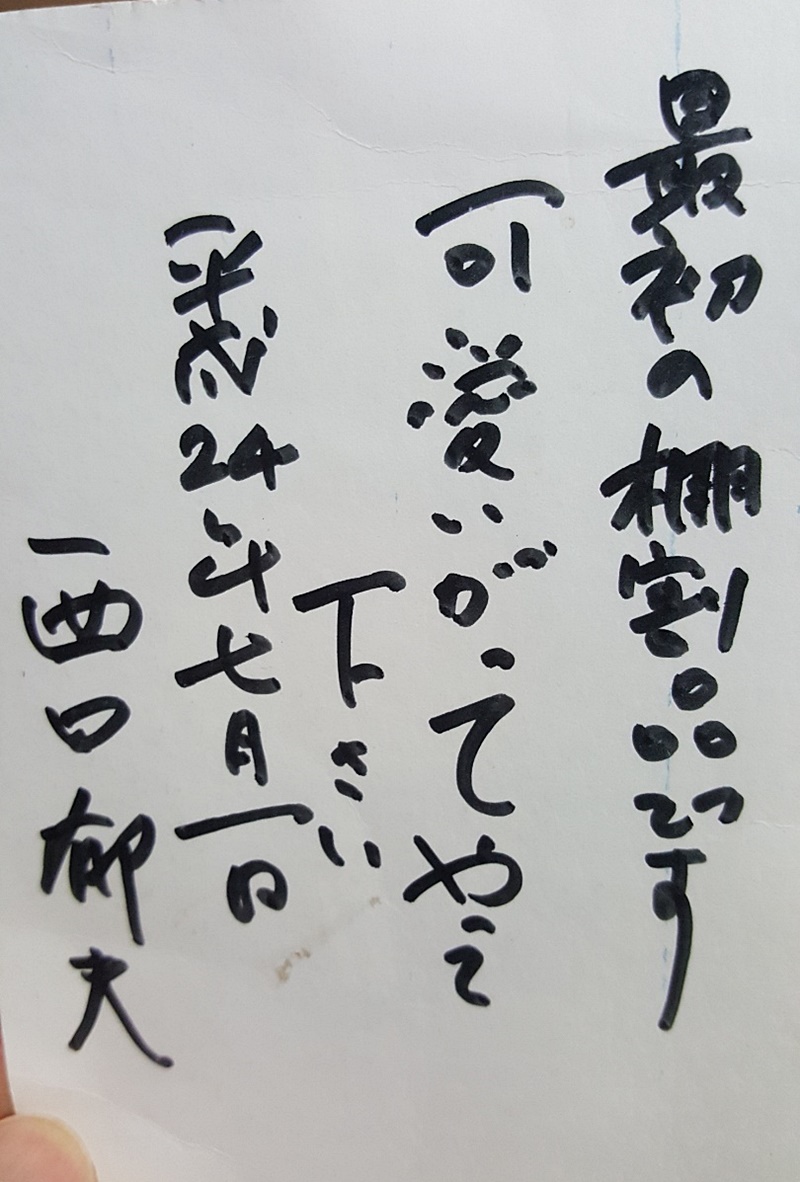 最初の棚割品です
可愛いがってやて
下さい
平成24年七月一日
西口郁夫